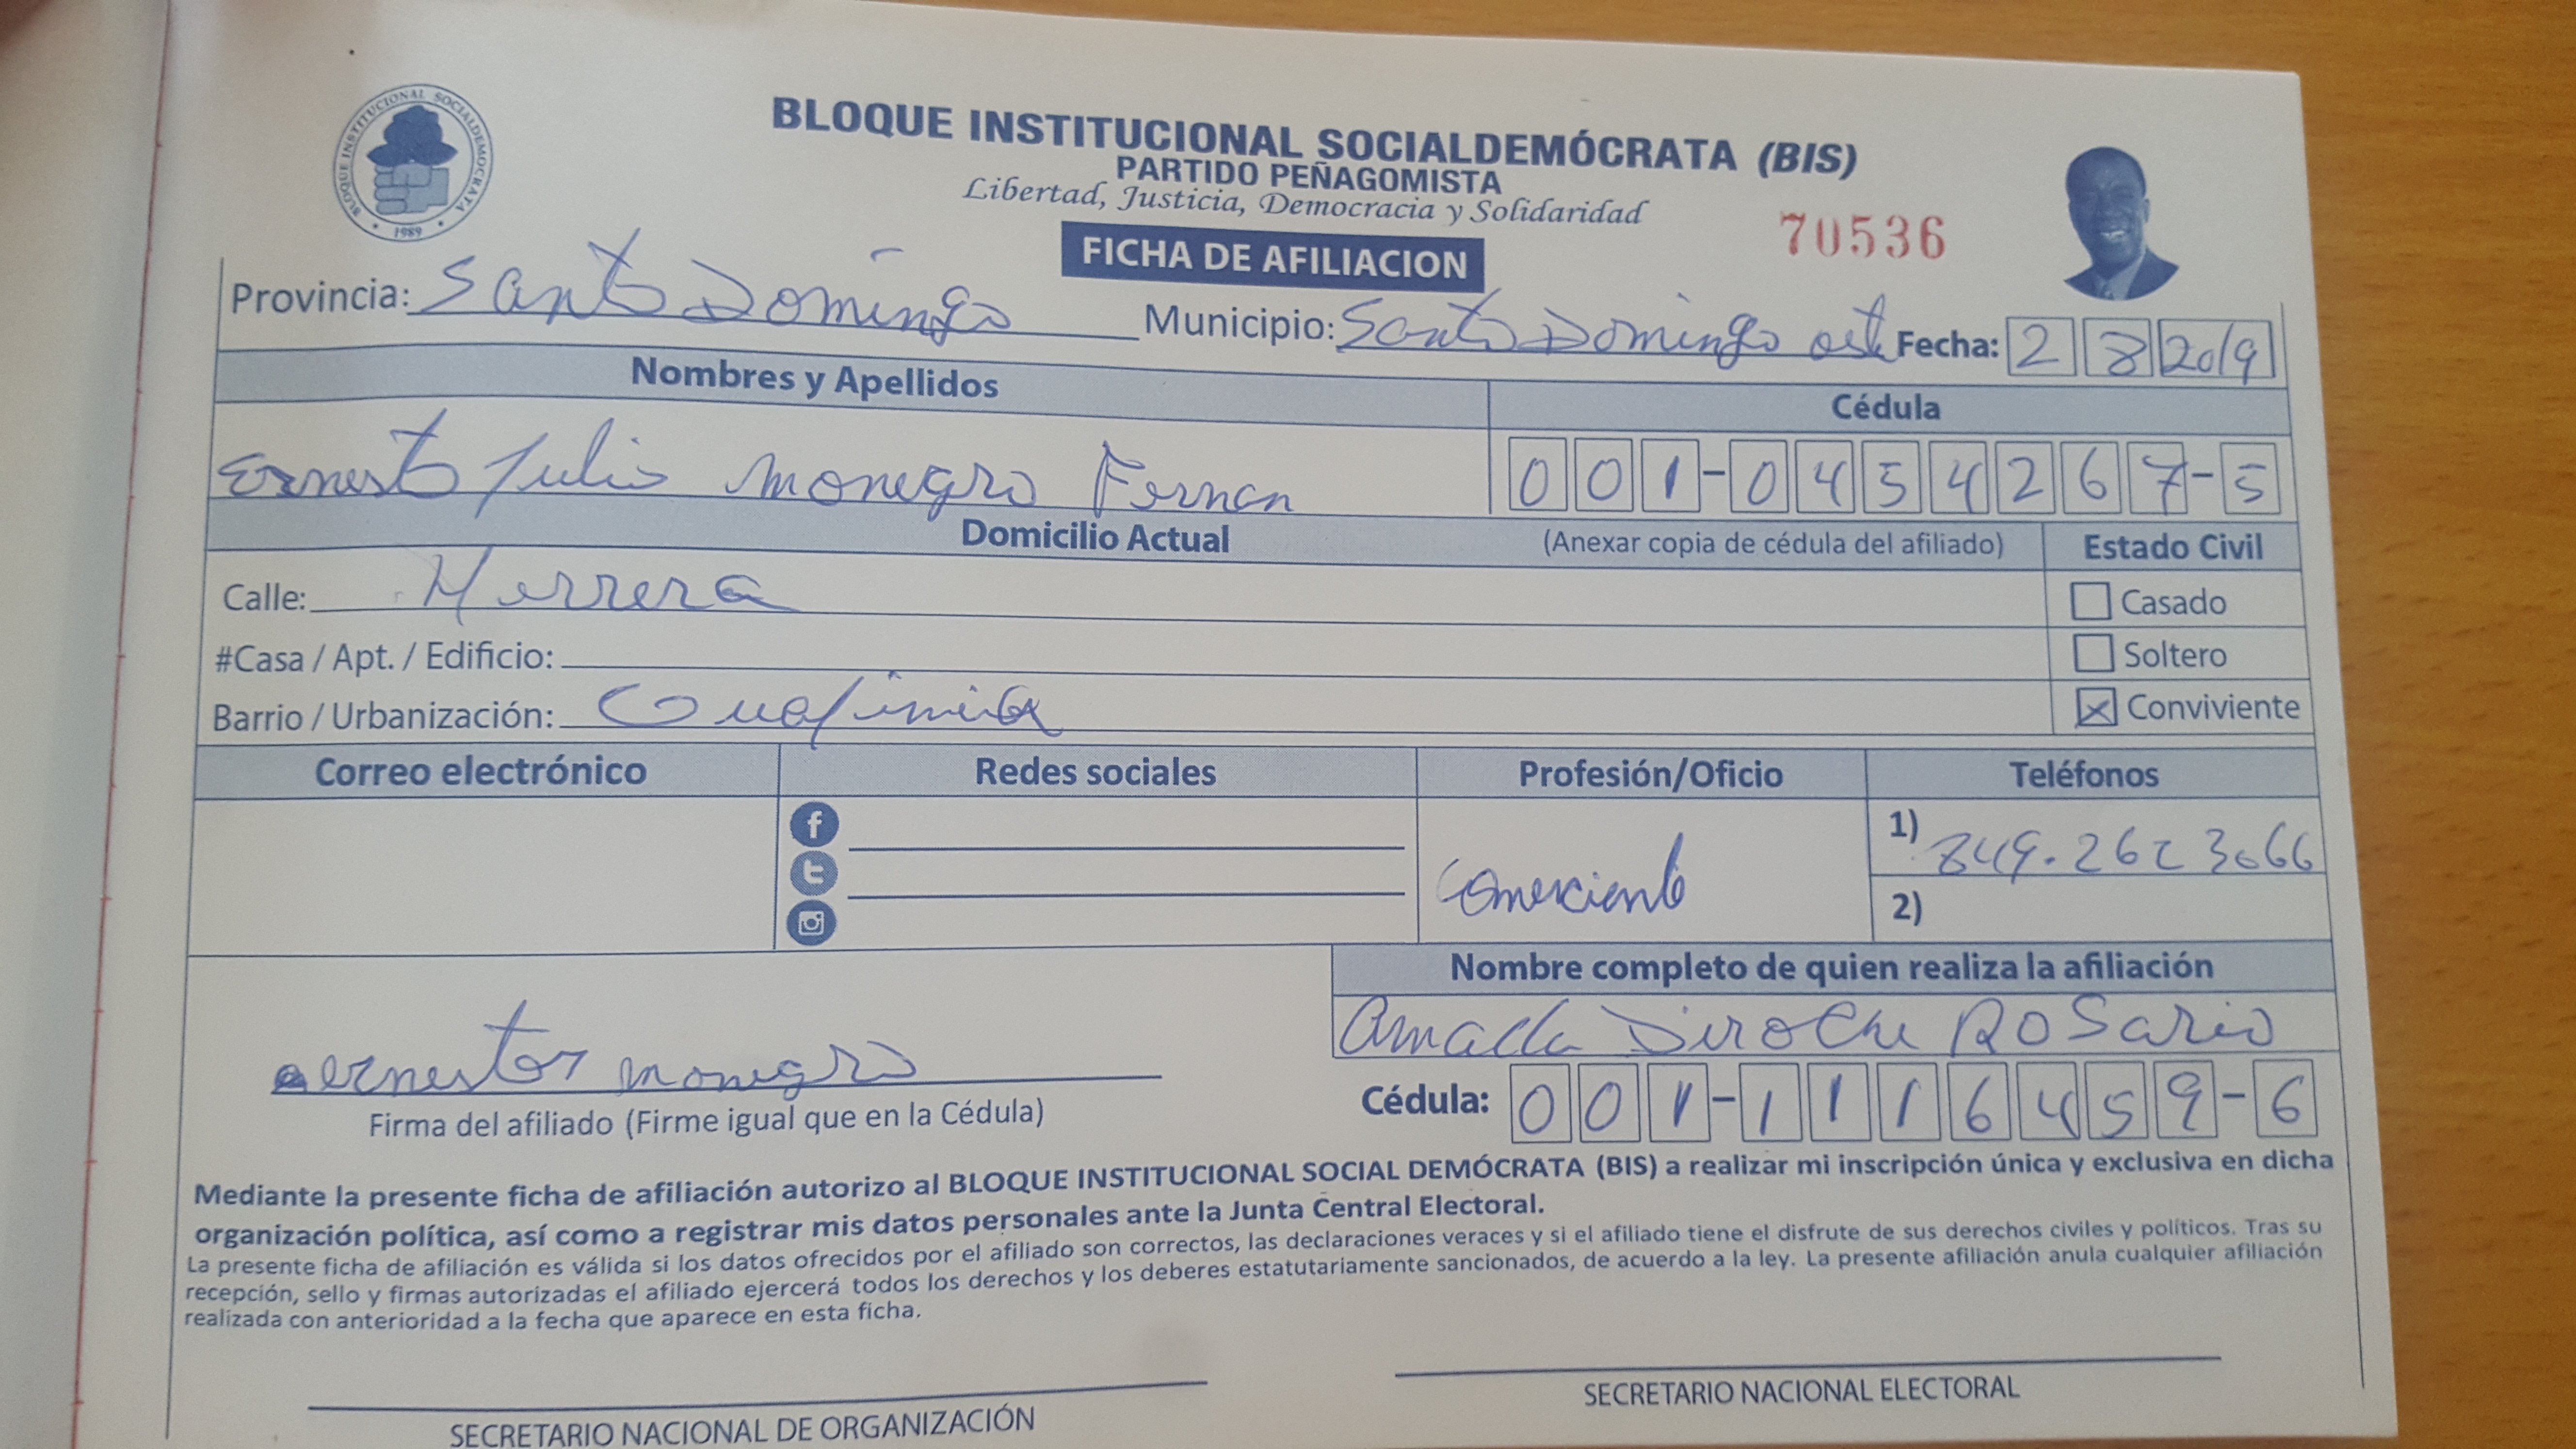 BLOQUE INSTITUCIONAL SOCIALDEMOCRATA
1989
BLOQUE INSTITUCIONAL SOCIALDEMÓCRATA (BIS)
PARTIDO PEÑAGOMISTA
Libertad, Justicia, Democracia y Solidaridad
70536
FICHA DE AFILIACION
Provincia: Santo Domingo Municipio: Santo Domingo Fecha: 2 8 2019
Nombres y Apellidos Cédula
Ernesto Julio Monegro Fernan 001-0454267-5
Domicilio Actual (Anexar copia de cédula del afiliado) Estado Civil
Calle: Herrera Casado
#Casa / Apt. / Edificio: Soltero
Barrio / Urbanización: Conviviente
Correo electrónico Redes sociales Profesión/Oficio Teléfonos
1) 849.262 3066
Comerciante
2)
Nombre completo de quien realiza la afiliación
Diroche Rosario
ernestor monegro
Cédula: 001-1116459-6
Firma del afiliado (Firme igual que en la Cédula)
Mediante la presente ficha de afiliación autorizo al BLOQUE INSTITUCIONAL SOCIAL DEMÓCRATA (BIS) a realizar mi inscripción única y exclusiva en dicha
organización política, así como a registrar mis datos personales ante la Junta Central Electoral.
La presente ficha de afiliación es válida si los datos ofrecidos por el afiliado son correctos, las declaraciones veraces y si el afiliado tiene el disfrute de sus derechos civiles y políticos. Tras su
recepción, sello y firmas autorizadas el afiliado ejercerá todos los derechos y los deberes estatutariamente sancionados, de acuerdo a la ley. La presente afiliación anula cualquier afiliación
realizada con anterioridad a la fecha que aparece en esta ficha.
SECRETARIO NACIONAL DE ORGANIZACIÓN SECRETARIO NACIONAL ELECTORAL